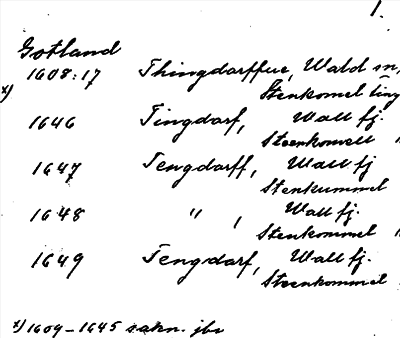 1.
Gotland
1608:17 Thingdorffue, Wald sn,
x) Stenkomel ting
1646 Tingdorf, Wall fj.
Steenkomell
1647 Tengdorff, Wall fj
Stenkummel
1648 " , Wall fj.
Stenkommel
1649 Tengdorf, Wall fj.
Steenkommel
x) 1609-1645 sakn. jbr